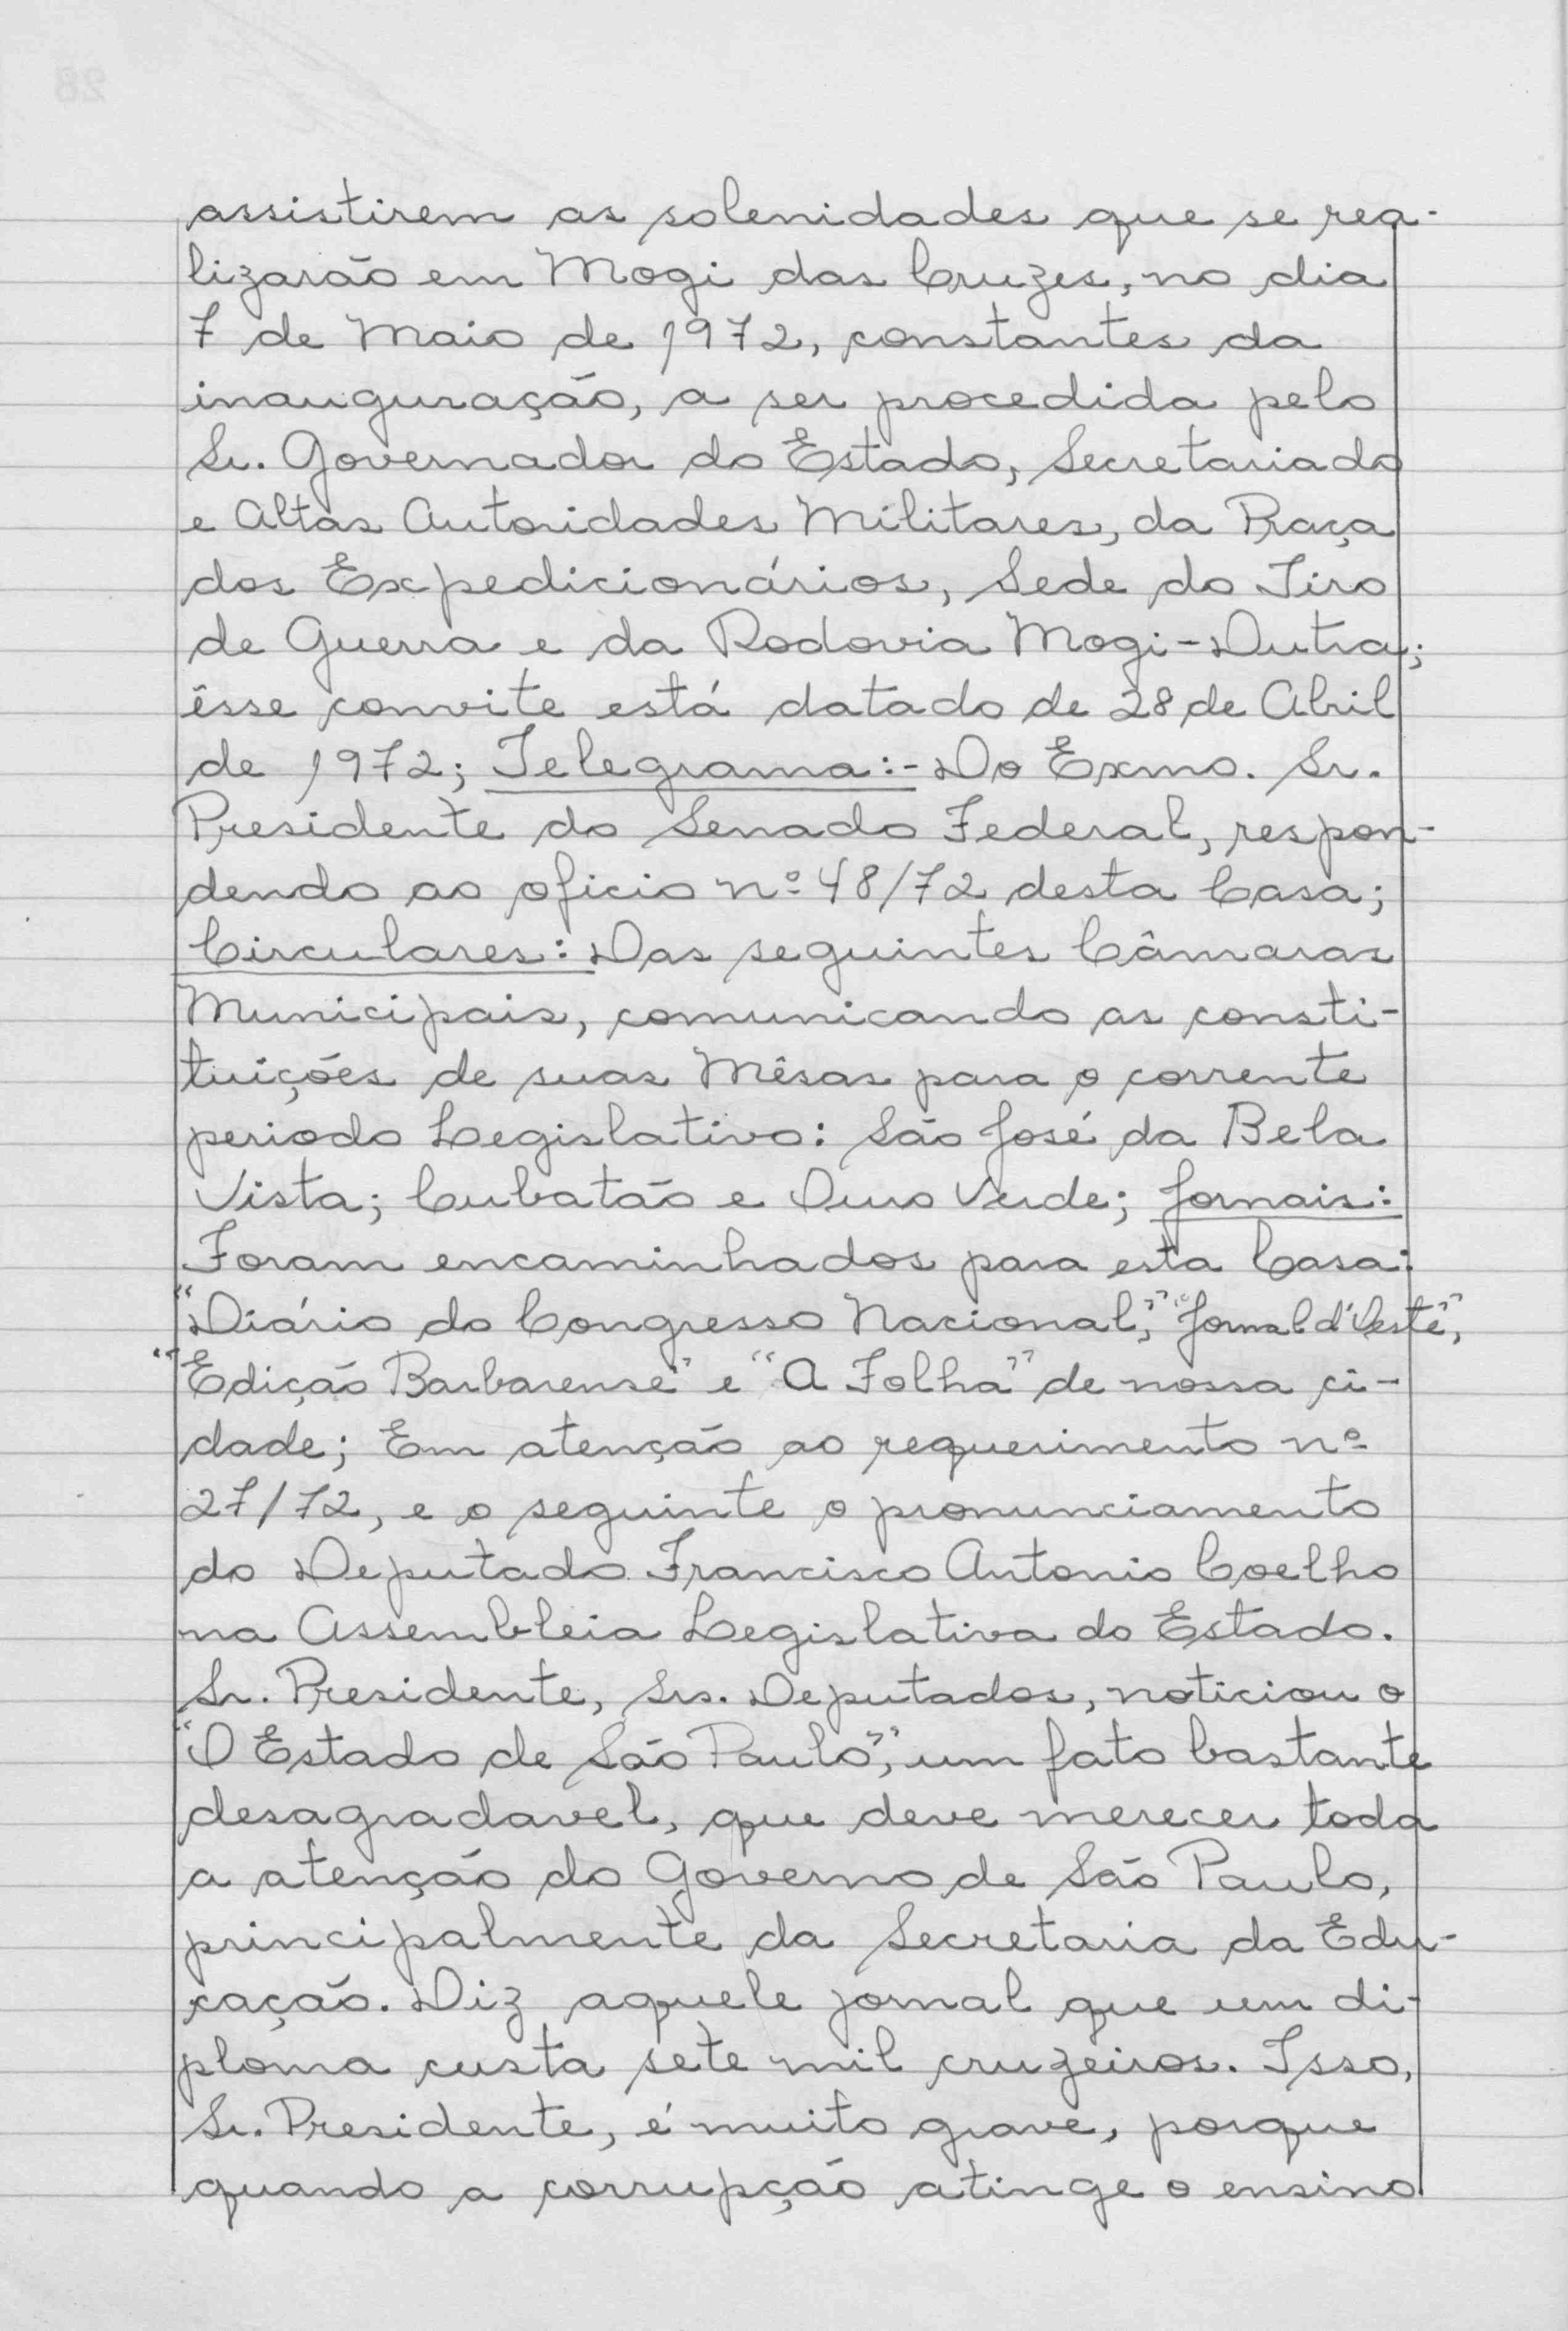 assistirem as solenidades que se rea-
lizarão em Mogi das Cruzes, no dia
7 de Maio de 1972, constantes da
inauguração, a ser procedida pelo
Sr. Governador do Estado, Secretariado
e Altas Autoridades Militares, da Praça
dos Expedicionários, Sede do Tiro
de Guerra e da Rodovia Mogi-Dutra;
êsse convite está datado de 28 de Abril
de 1972; Telegrama:- Do Exmo. Sr.
Presidente do Senado Federal, respon-
dendo ao oficio nº 48/72 desta Casa;
Circulares: Das seguintes Câmaras
Municipais, comunicando as consti-
tuições de suas Mêsas para o corrente
periodo Legislativo: São José da Bela
Vista; Cubatão e Ouro Verde; Jornais:
Foram encaminhados para esta Casa:
"Diário do Congresso Nacional", "Jornal d'Oeste",
"Edição Barbarense" e "A Folha" de nossa ci-
dade; Em atenção ao requerimento nº
27/72, e o seguinte o pronunciamento
do Deputado Francisco Antonio Coelho
na Assembleia Legislativa do Estado.
Sr. Presidente, Srs. Deputados, noticiou o
"O Estado de São Paulo", um fato bastante
desagradavel, que deve merecer toda
a atenção do Governo de São Paulo,
principalmente da Secretaria da Edu-
cação. Diz aquele jornal que um di-
ploma custa sete mil cruzeiros. Isso,
Sr. Presidente, é muito grave, porque
quando a corrupção atinge o ensino